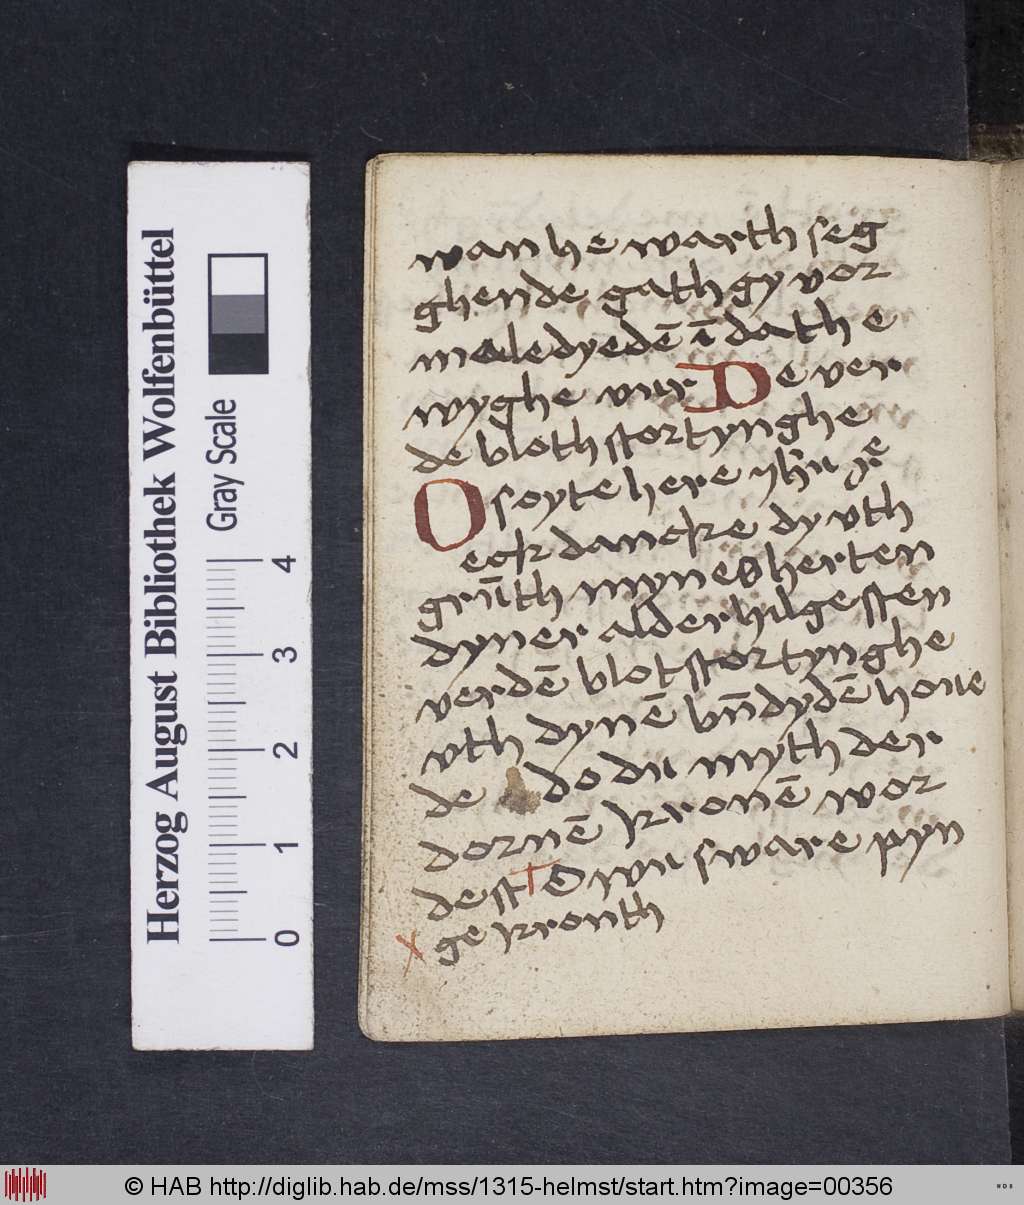 wan he warth seg
ghende gath gy vor
maledyedē ī dat h e
wyghe vur De ver
de bloth stortynghe
O soyte here ihū
eck dancke dy vth
grūth mynes herten
dyner alderhilgesten
verdē blotstortynghe
vth dynē bn̄dydē houe
de do du myth der
dornē kronē wor
dest to wu sware pyn
ge kronth
Herzog August Bibliothek Wolfenbüttel
Gray Scale
0 1 2 3 4
© HAB http://diglib.hab.de/mss/1315-helmst/start.htm?image=00356